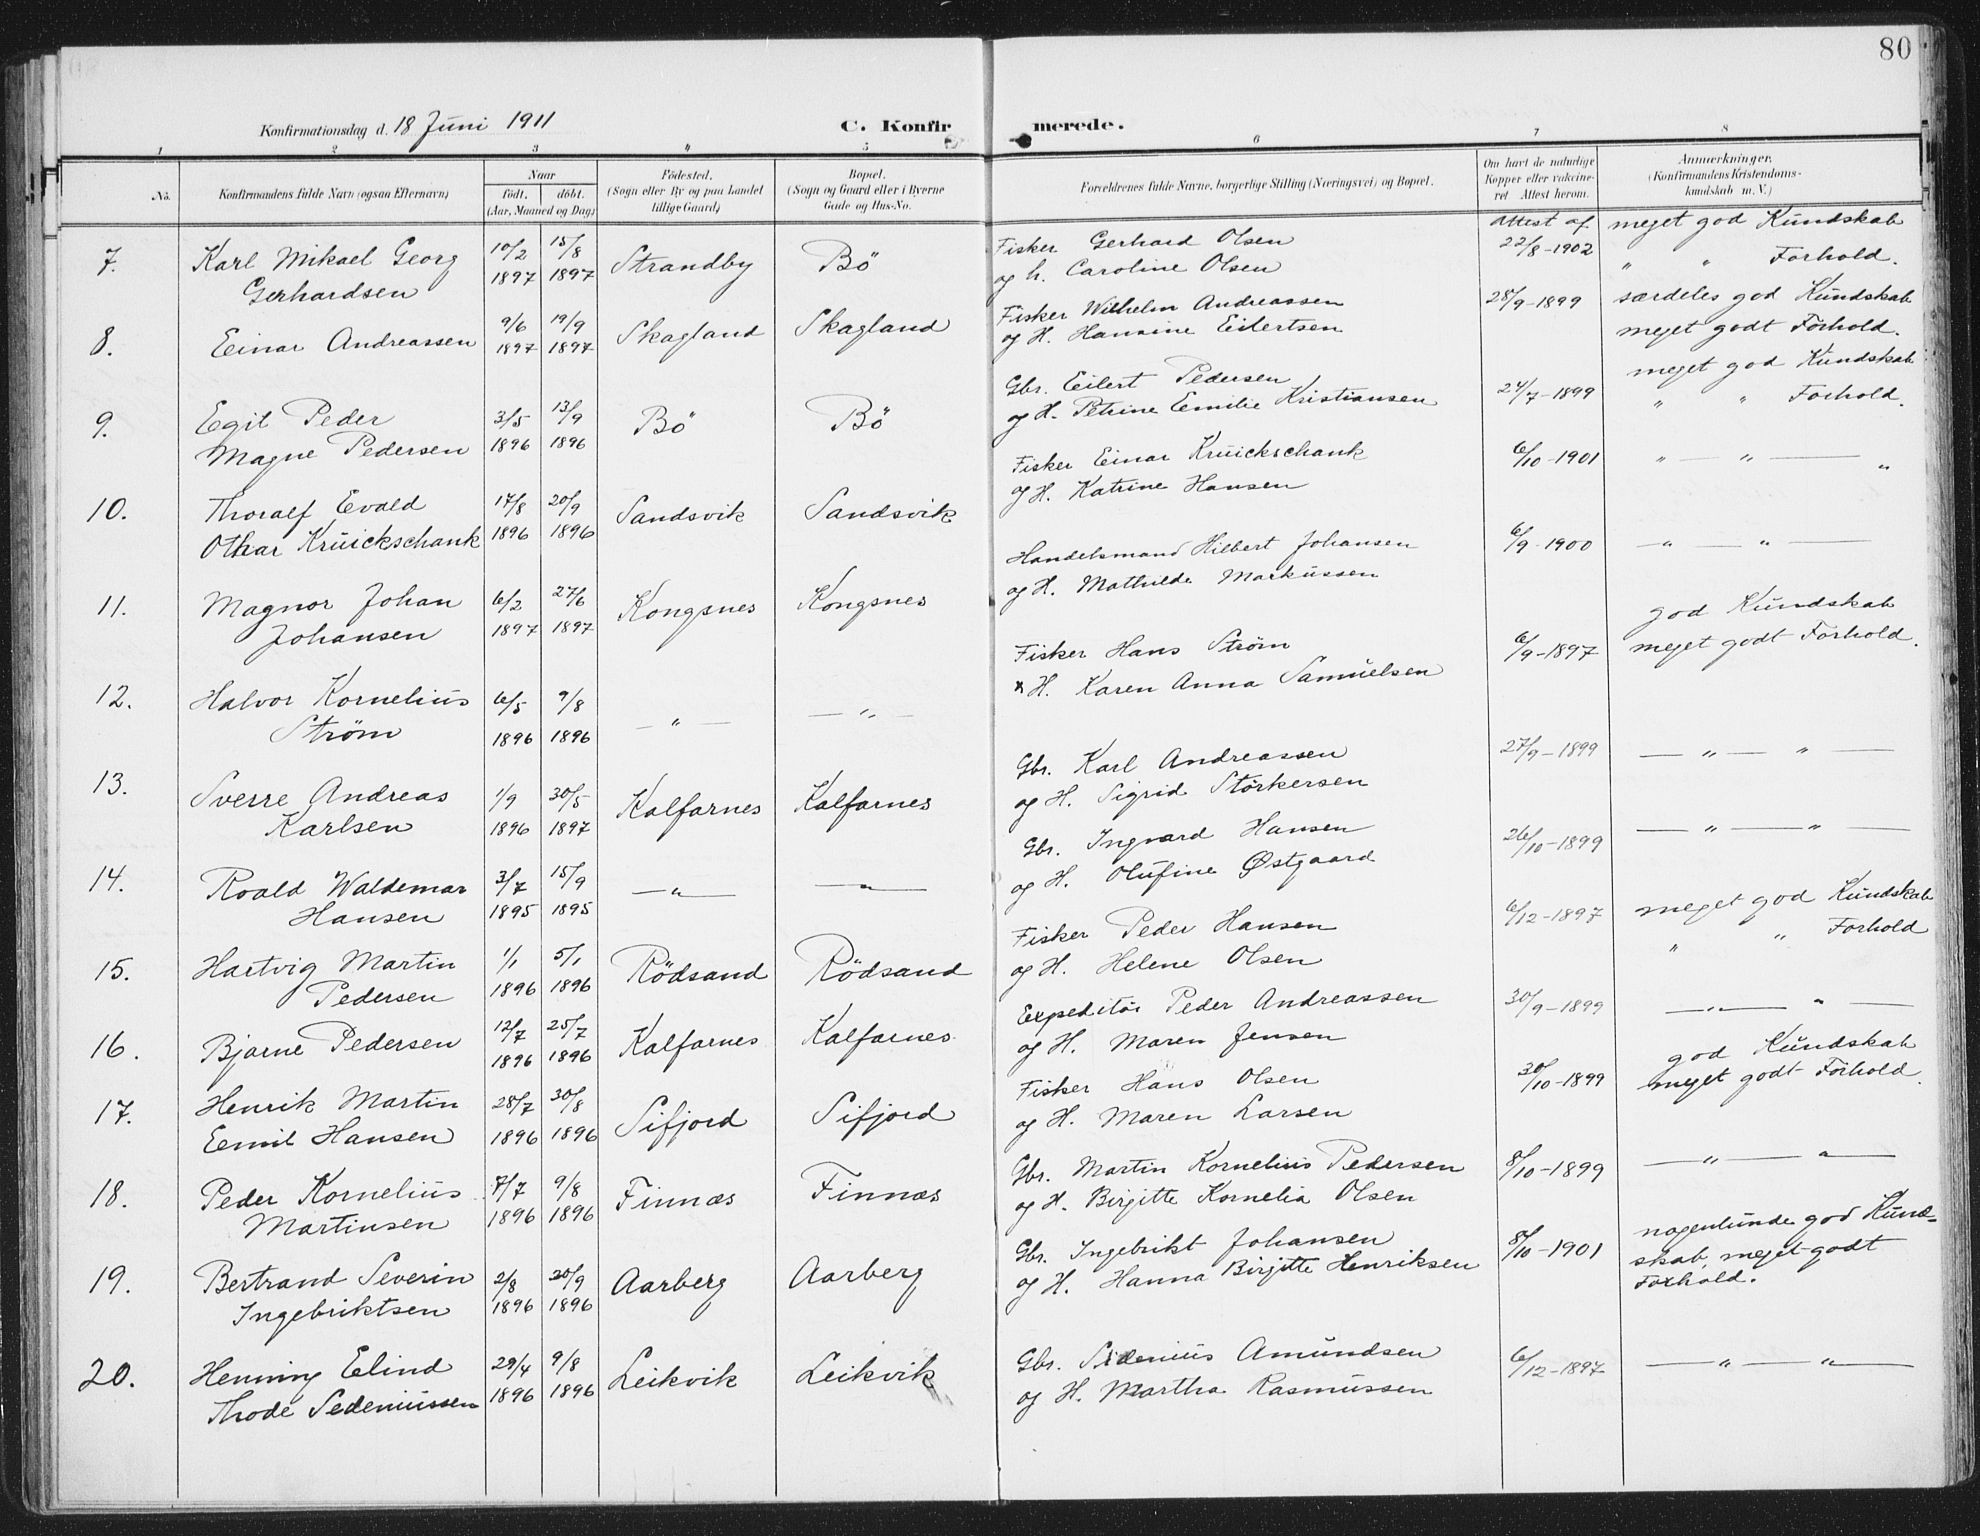 80
Konfirmationsdag d. 18 Juni 1911 C. Konfirmerede.
1 2 3 4 5 6 7 8
No. Konfirmandens fulde Navn (ogsaa Efternavn) Naar født, døbt. (Aar, Maaned og Dag) Fødested. (Sogn eller By og paa Landet tillige Gaard) Bopæl. (Sogn og Gaard eller i Byerne Gade og Hus-No. Forældrenes fulde Navne, borgerlige Stilling (Næringsvei) og Bopæl. Om havt de naturlige Kopper eller vaccineret Attest herom. Anmærkninger. (Konfirmandens Kristendomskundskab m. V.)
7. Karl Mikael Georg 10/2 15/8 Strandby Bö Fisker Gerhard Olsen Attest af 22/8-1902 meget god Kundskab
Gerhardsen 1897 1897 og h. Caroline Olsen " " Forhold.
8. Einar Andreassen 9/6 19/9 Skagland Skagland Fisker Wilhelm Andreassen 28/9-1899 særdeles god Kundskab
1897 1897 og H. Hansine Eilertsen meget godt Forhold.
9. Egil Peder 3/5 13/9 Bö Bö Gbr. Eilert Pedersen 24/7-1899 meget god Kundskab
Magne Pedersen 1896 1896 og H. Petrine Emilie Kristiansen " " Forhold.
10. Thoralf Evald 17/8 20/9 Sandsvik Sandsvik Fisker Einar Kruickschank 6/10-1901 " — " — "
Othar Kruickschank 1896 1896 og H. Katrine Hansen
11. Magnor Johan 6/2 27/6 Kongsnes Kongsnes Handelsmand Hilbert Johansen 6/9-1900 — " — " —
Johansen 1897 1897 og H. Mathilde Markussen
12. Halvor Kornelius 6/5 9/8 — " — — " — Fisker Hans Strøm 6/9-1897 god Kundskab
Strøm 1896 1896 H. Karen Anna Samuelsen meget godt Forhold.
13. Sverre Andreas 1/9 30/5 Kalfarnes Kalfarnes Gbr. Karl Andreassen 27/9-1899 — " — " —
Karlsen 1896 1897 og H. Sigrid Störkersen
14. Roald Waldemar 3/7 15/9 — " — — " — Gbr. Ingvard Hansen 26/10-1899 — " — " —
Hansen 1895 1895 og H. Olufine Østgaard
15. Hartvig Martin 1/1 5/1 Rödsand Rödsand Fisker Peder Hansen 6/12-1897 meget god Kundskab
Pedersen 1896 1896 og H. Helene Olsen " " Forhold
16. Bjarne Pedersen 12/7 25/7 Kalfarnes Kalfarnes Expeditör Peder Andreassen 30/9-1899 — " — " —
1896 1896 og H. Maren Jensen
17. Henrik Martin 28/7 30/8 Sifjord Sifjord Fisker Hans Olsen 30/10-1899 god Kundskab
Eemil Hansen 1896 1896 og H. Maren Larsen meget godt Forhold.
18. Peder Kornelius 7/7 9/8 Finnæs Finnæs Gbr. Martin Kornelius Pedersen 8/10-1899 — " — " —
Martinsen 1896 1896 og H. Birgitte Kornelia Olsen
19. Bertrand Severin 2/8 20/9 Aarberg Aarberg Gbr. Ingebrikt Johansen 8/10-1901 nogenlunde god Kund-
Ingebriktsen 1896 1896 og H. Hanna Birgitte Henriksen skab, meget godt
Forhold.
20. Henning Elind 29/4 9/8 Leikvik Leikvik Gbr. Sedenius Amundsen 6/12-1897 — " — " —
Thode Sedeniussen 1896 1896 og H. Martha Rasmussen